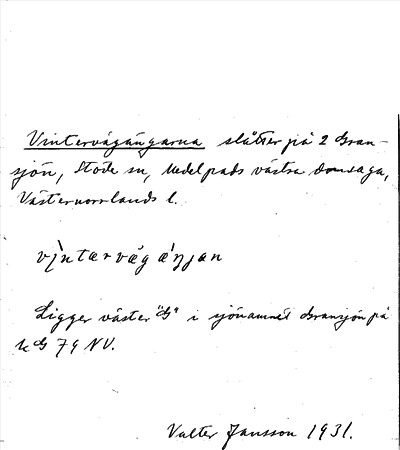 Vintervägängarna slåtter på 2 Gran-
sjön, Stöde sn, Medelpads västra domsaga,
Västernorrlands l.
vi̖ntærvǽg ǽŋjan
Ligger väster "G" i sjönamnet Gransjön på
k G 79 NV.
Valter Jansson 1931.